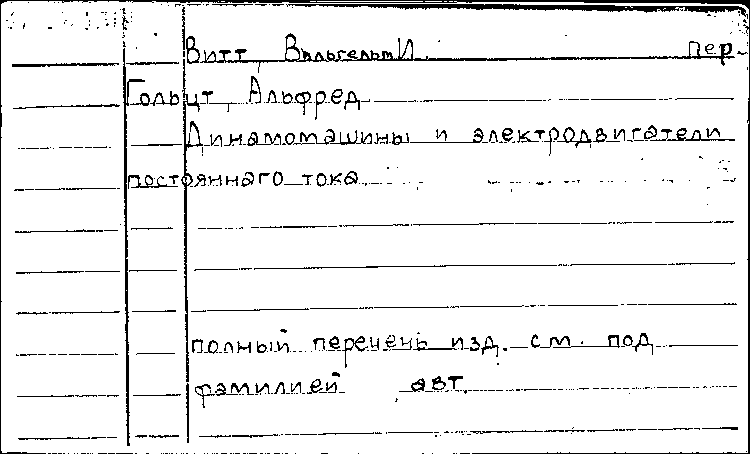 Витт, Вильгельм И. пер.
Гольцт, Альфред
Динамомашины и электродвигатели
постояннаго тока.
полный перечень изд. см. под
фамилией авт.